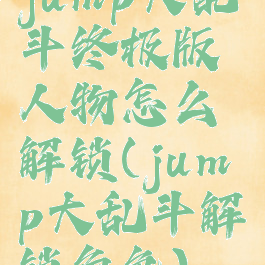 jump大乱
斗终极版
人物怎么
解锁(jum
p大乱斗解
锁角色)